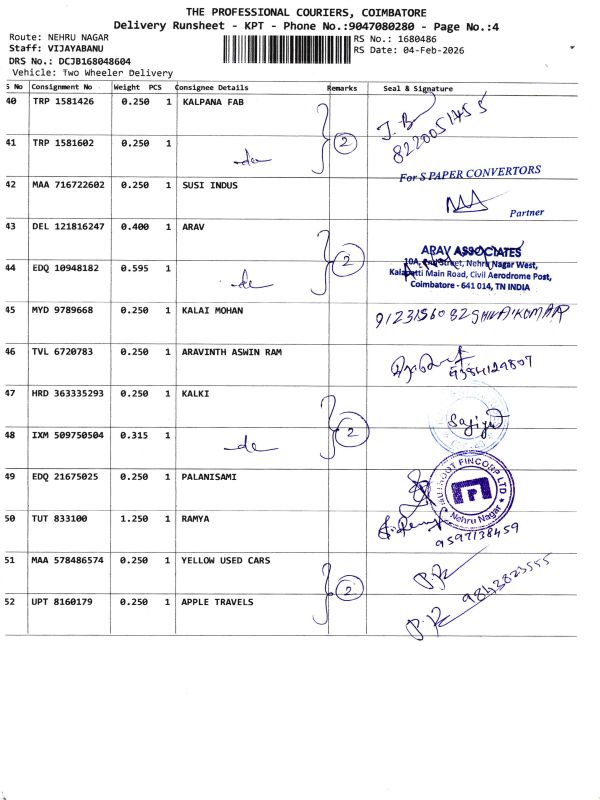 THE PROFESSIONAL COURIERS, COIMBATORE
Delivery Runsheet - KPT - Phone No.:9047080280 - Page No.:4
Route: NEHRU NAGAR
RS No.: 1680486
Staff: VIJAYABANU
RS Date: 04-Feb-2026
DRS No.: DCJB168048604
Vehicle: Two Wheeler Delivery
S No Consignment No Weight PCS Consignee Details Remarks Seal & Signature
40 TRP 1581426 0.250 1 KALPANA FAB
J. B
8220051455
41 TRP 1581602 0.250 1
do 2
For S PAPER CONVERTORS
42 MAA 716722602 0.250 1 SUSI INDUS
Partner
43 DEL 121816247 0.400 1 ARAV
ARAV ASSOCIATES
10A, 2nd Street, Nehru Nagar West,
Kalapatti Main Road, Civil Aerodrome Post,
Coimbatore - 641 014, TN INDIA
44 EDQ 10948182 0.595 1
do 2
45 MYD 9789668 0.250 1 KALAI MOHAN
9123156082 SHIVA KUMAR
46 TVL 6720783 0.250 1 ARAVINTH ASWIN RAM
9384129807
47 HRD 363335293 0.250 1 KALKI
48 IXM 509750504 0.315 1
do 2
49 EDQ 21675025 0.250 1 PALANISAMI
MUTHOOT FINCORP LTD
Nehru Nagar
50 TUT 833100 1.250 1 RAMYA
9597138459
51 MAA 578486574 0.250 1 YELLOW USED CARS
P.R
2
52 UPT 8160179 0.250 1 APPLE TRAVELS
P.R 9843823555